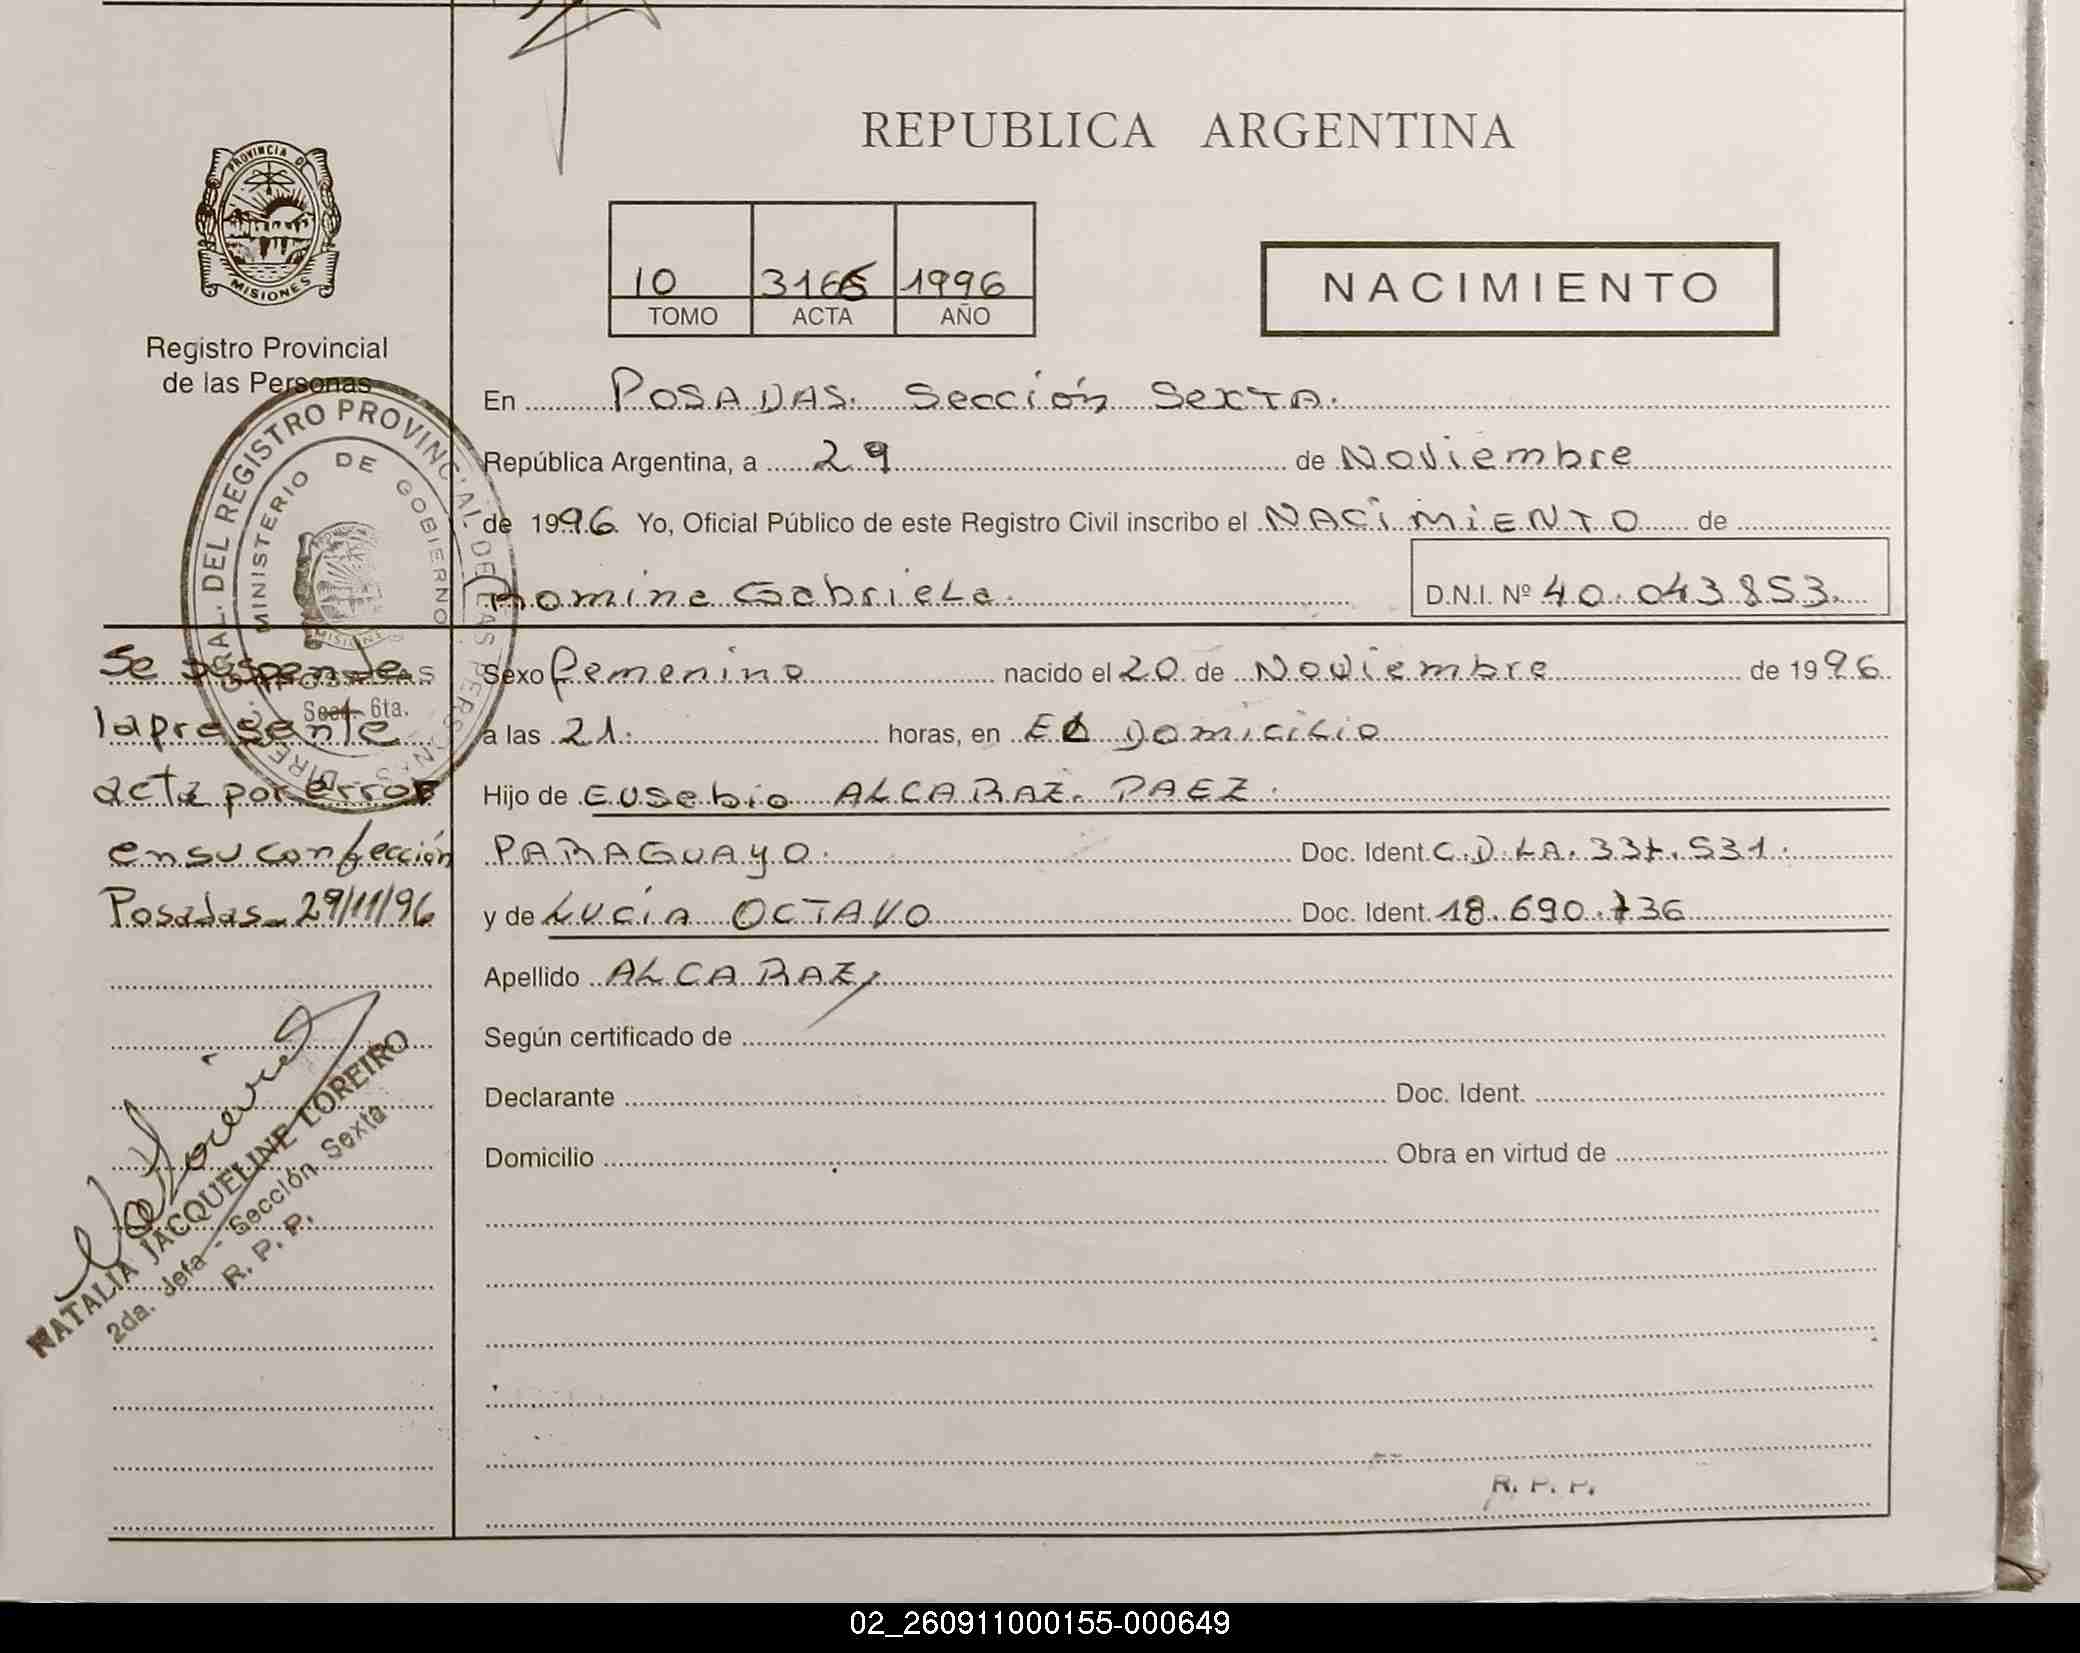 REPUBLICA ARGENTINA
PROVINCIA DE
MISIONES
Registro Provincial
de las Personas
10 3166 1996
TOMO ACTA AÑO
NACIMIENTO
En POSADAS. Sección Sexta.
República Argentina, a 29 de Noviembre
de 1996 Yo, Oficial Público de este Registro Civil inscribo el NACIMIENTO de
Romina Gabriela. D.N.I. Nº 40.043.853.
Sexo femenino nacido el 20 de Noviembre de 1996
a las 21. horas, en El Domicilio
Hijo de Eusebio ALCARAZ PAEZ.
PARAGUAYO. Doc. Ident. C.D.LA. 337.531.
y de Lucia OCTAVO Doc. Ident. 18.690.736
Apellido ALCARAZ,
Según certificado de
Declarante Doc. Ident.
Domicilio Obra en virtud de
R. P. P.
DEL REGISTRO PROVINCIAL DE LAS PERSONAS
MINISTERIO DE GOBIERNO
MISIONES
POSADAS
Secc. 6ta.
Se suspende
la presente
acta por error
en su confección
Posadas_ 29/11/96
NATALIA JACQUELINE LOREIRO
2da. Jefa - Sección Sexta
R. P. P.
02_260911000155-000649